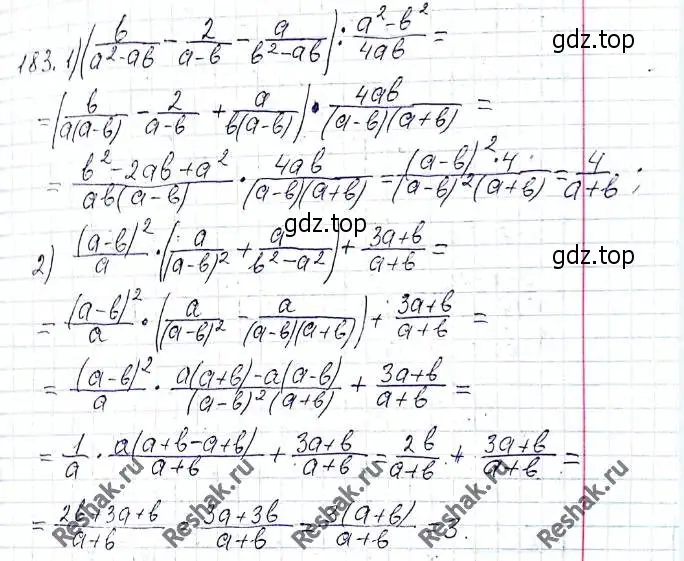 183. 1) (b/(a²-ab) - 2/(a-b) - a/(b²-ab)) : (a²-b²)/(4ab) =
gdz.top
= (b/(a(a-b)) - 2/(a-b) + a/(b(a-b))) · 4ab/((a-b)(a+b)) =
= (b²-2ab+a²)/(ab(a-b)) · 4ab/((a-b)(a+b)) = ((a-b)²·4)/((a-b)²(a+b)) = 4/(a+b);
2) (a-b)²/a · (a/(a-b)² + a/(b²-a²)) + (3a+b)/(a+b) =
gdz.top gdz.top
= (a-b)²/a · (a/(a-b)² - a/((a-b)(a+b))) + (3a+b)/(a+b) =
= (a-b)²/a · (a(a+b)-a(a-b))/((a-b)²(a+b)) + (3a+b)/(a+b) =
= 1/a · a(a+b-a+b)/(a+b) + (3a+b)/(a+b) = 2b/(a+b) + (3a+b)/(a+b) =
= (2b+3a+b)/(a+b) = (3a+3b)/(a+b) = 3(a+b)/(a+b) = 3.
Reshak.ru Reshak.ru Reshak.ru Reshak.ru